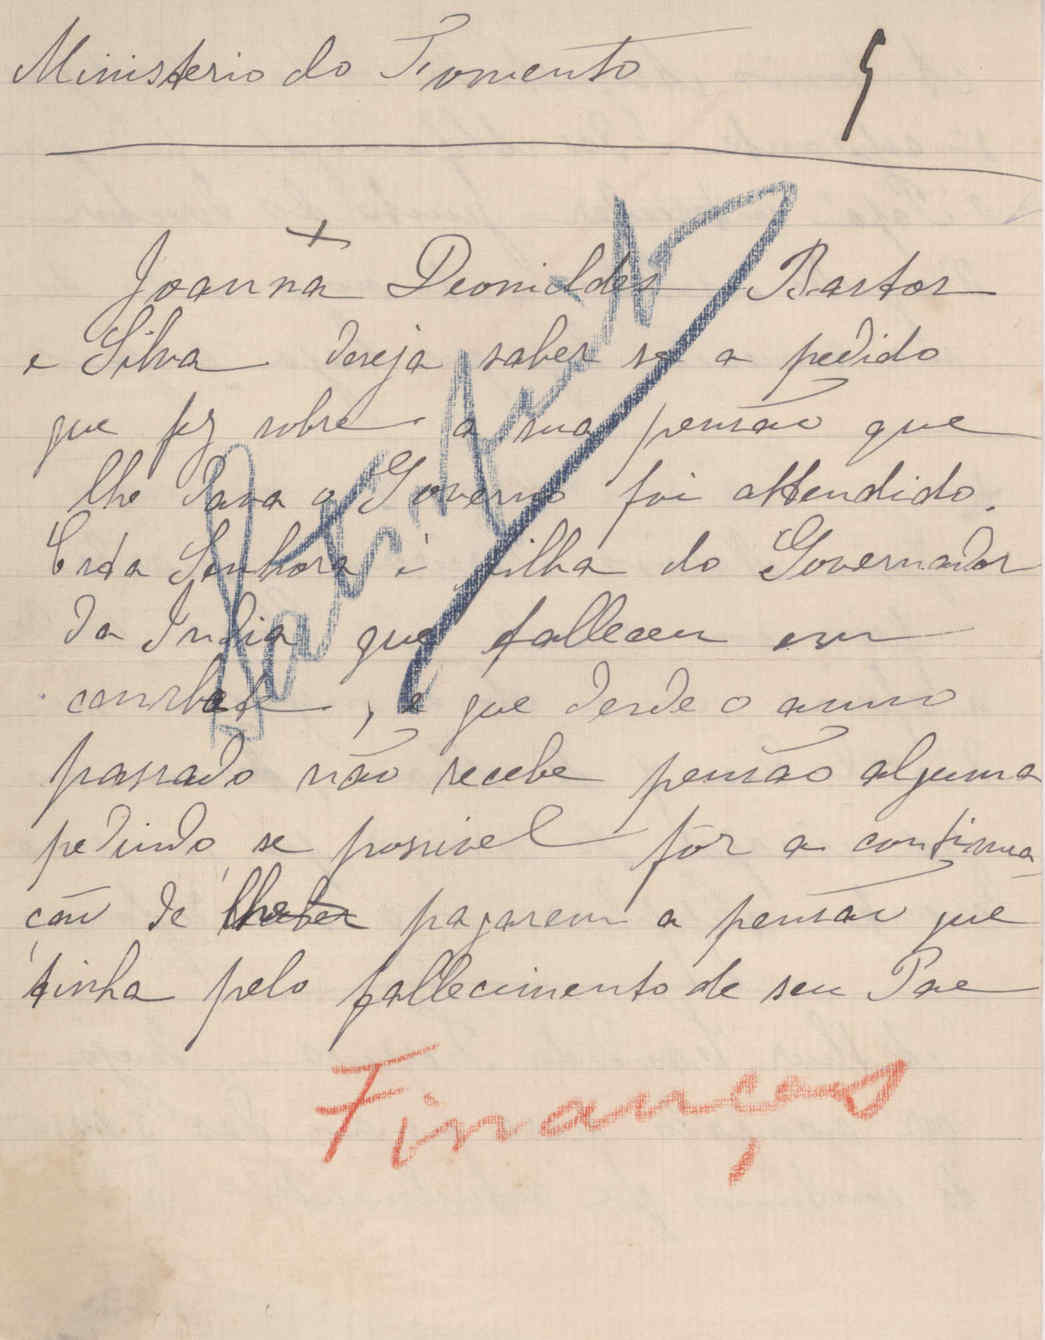 Ministerio do Fomento
Joanna Deonildes Bastos
e Silva deseja saber se a pedido
que fez sobre a sua pensão que
lhe dava o Governo foi attendido.
Esta Senhora é filha do Governador
da India que falleceu em
combate, e que desde o anno
passado não recebe pensão alguma
pedindo se possivel fôr a continua
ção de lhe pagarem a pensão que
tinha pelo fallecimento de seu Pae
Satisfeito
Finanças